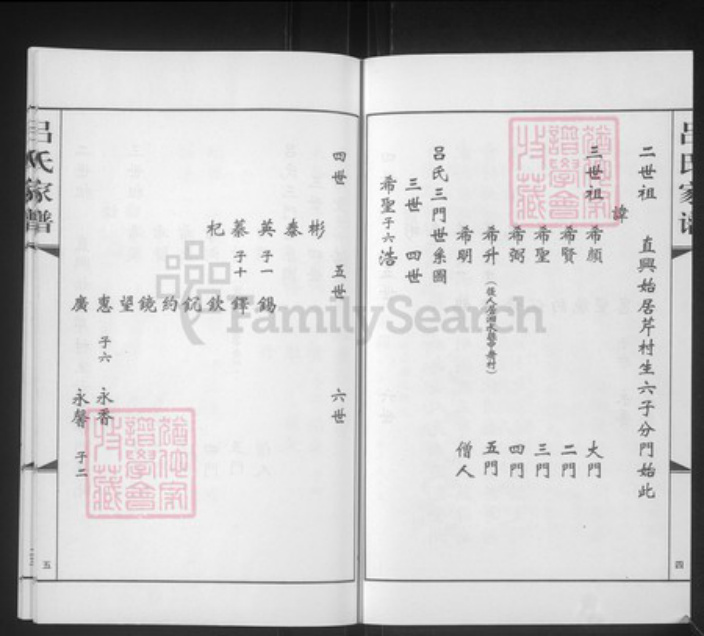 吕氏家譜
二世祖 直興始居芹村生六子分門始此
諱
三世祖 希顏 大門
希賢 二門
希聖 三門
希弼 四門
希升 五門
希明 僧人
吕氏三門世系圖
三世 四世
希聖 子六 浩
四
四世 五世 六世
彬
泰
英 子一 錫
蓁 子十 鐸
杞 欽
約
鏡
望
惠 子六 永香
廣 永馨 子二
五
吕氏家譜
FamilySearch